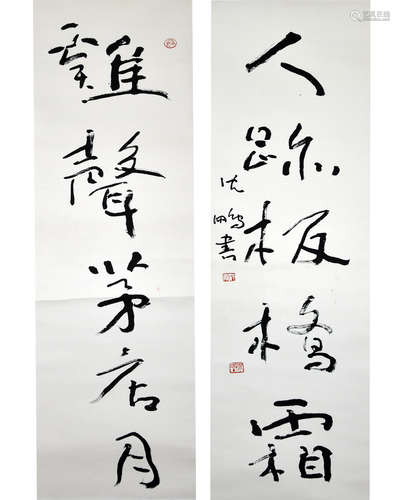 雞聲茅店月
人跡板橋霜
沈鵬書